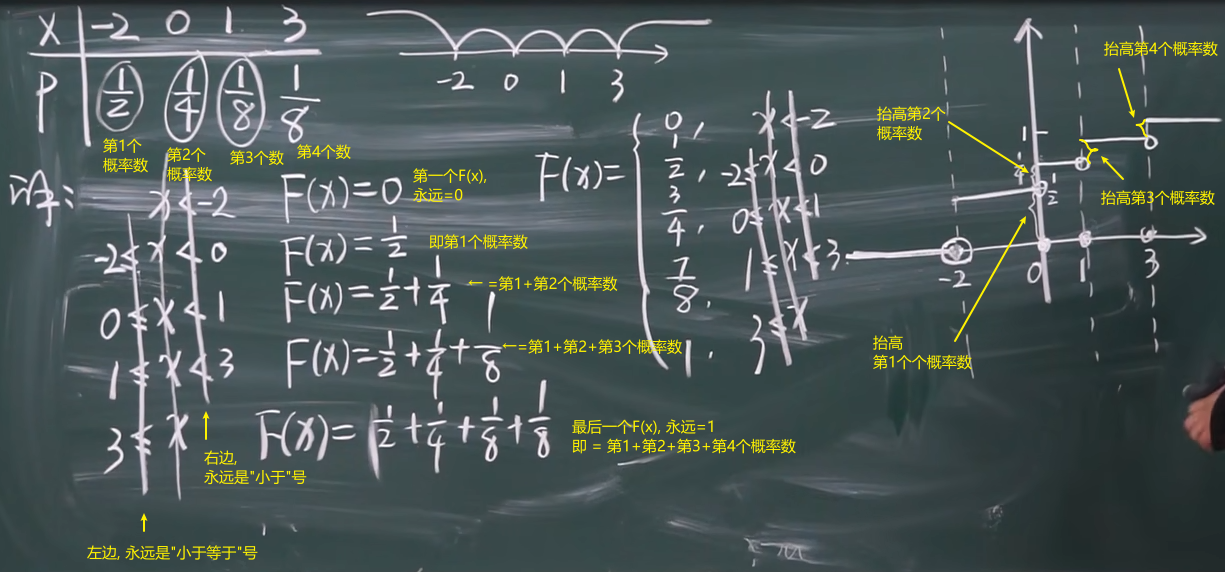 X -2 0 1 3
P 1/2 1/4 1/8 1/8
第1个
概率数
第2个
概率数
第3个数
第4个数
-2 0 1 3
解:
x<-2 F(x)=0
第一个F(x),
永远=0
-2≤x<0 F(x)=1/2
即第1个概率数
0≤x<1 F(x)=1/2+1/4
←=第1+第2个概率数
1≤x<3 F(x)=1/2+1/4+1/8
←=第1+第2+第3个概率数
3≤x F(x)=1/2+1/4+1/8+1/8
最后一个F(x), 永远=1
即 = 第1+第2+第3+第4个概率数
右边,
永远是"小于"号
左边, 永远是"小于等于"号
F(x)=
0, x<-2
1/2, -2≤x<0
3/4, 0≤x<1
7/8, 1≤x<3.
1. 3≤x
抬高第4个概率数
抬高第2个
概率数
抬高第3个概率数
抬高
第1个个概率数
1
1/2
-2 0 1 3